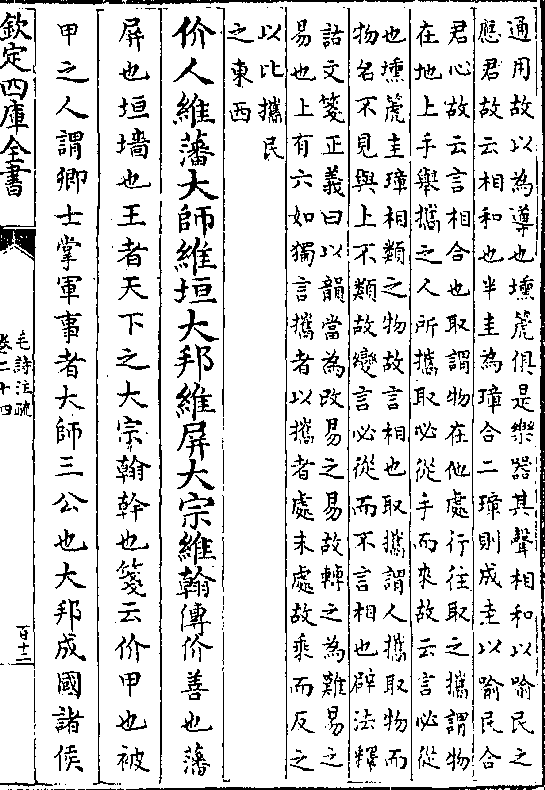 通用故以為導也壎篪俱是樂器其聲相和以喻民之
應君故云相和也半圭為璋合二璋則成圭以喻民合
君心故云言相合也取謂物在他處行往取之攜謂物
在地上手舉攜之人所攜取必從手而來故云言必從
也壎篪圭璋相類之物故言相也取攜謂人攜取物而
物名不見與上不類故變言必從而不言相也辟法釋
詁文箋正義曰以韻當為改易之易故轉之為難易之
易也上有六如獨言攜者以攜者處末處故乘而反之
以比攜民
之東西
价人維藩大師維垣大邦維屏大宗維翰傳价善也藩
屏也垣墻也王者天下之大宗翰幹也箋云价甲也被
甲之人謂卿士掌軍事者大師三公也大邦成國諸侯
欽定四庫全書
毛詩注疏
卷二十四
百十二